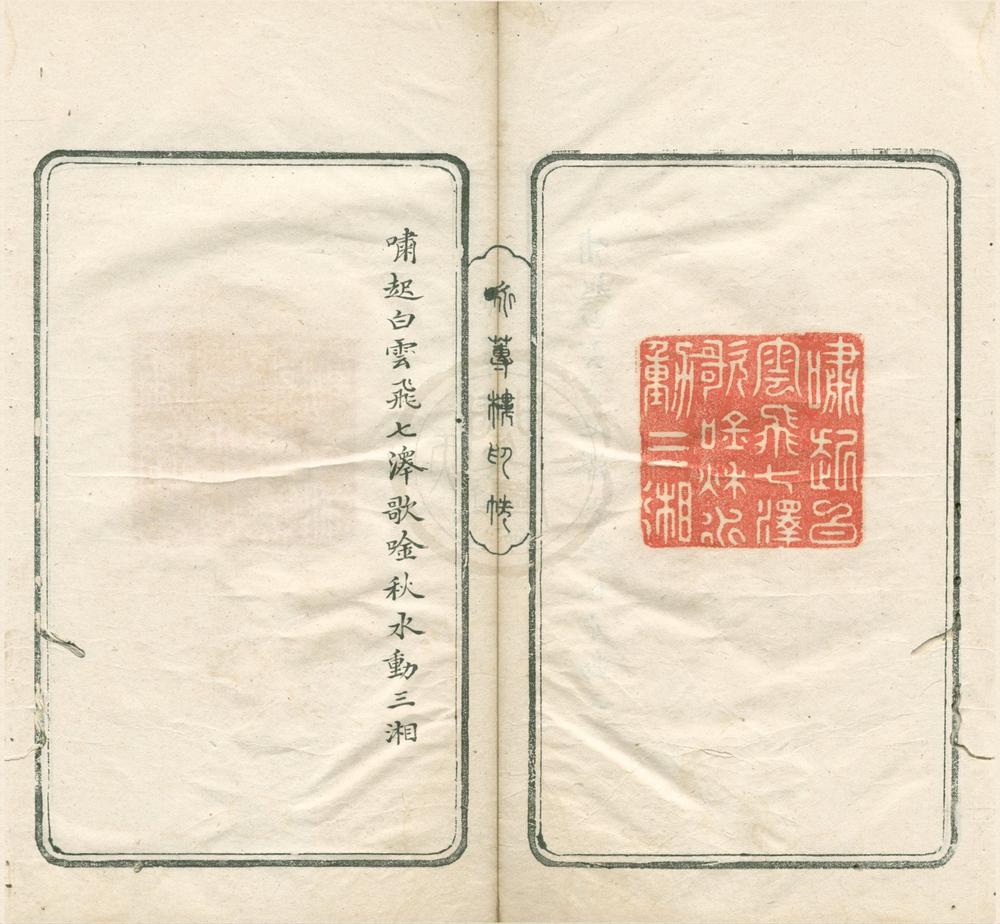 嘯起白
雲飛七澤
歌唫秋水
動三湘
咏蓴樓印帙
嘯起白雲飛七澤歌唫秋水動三湘